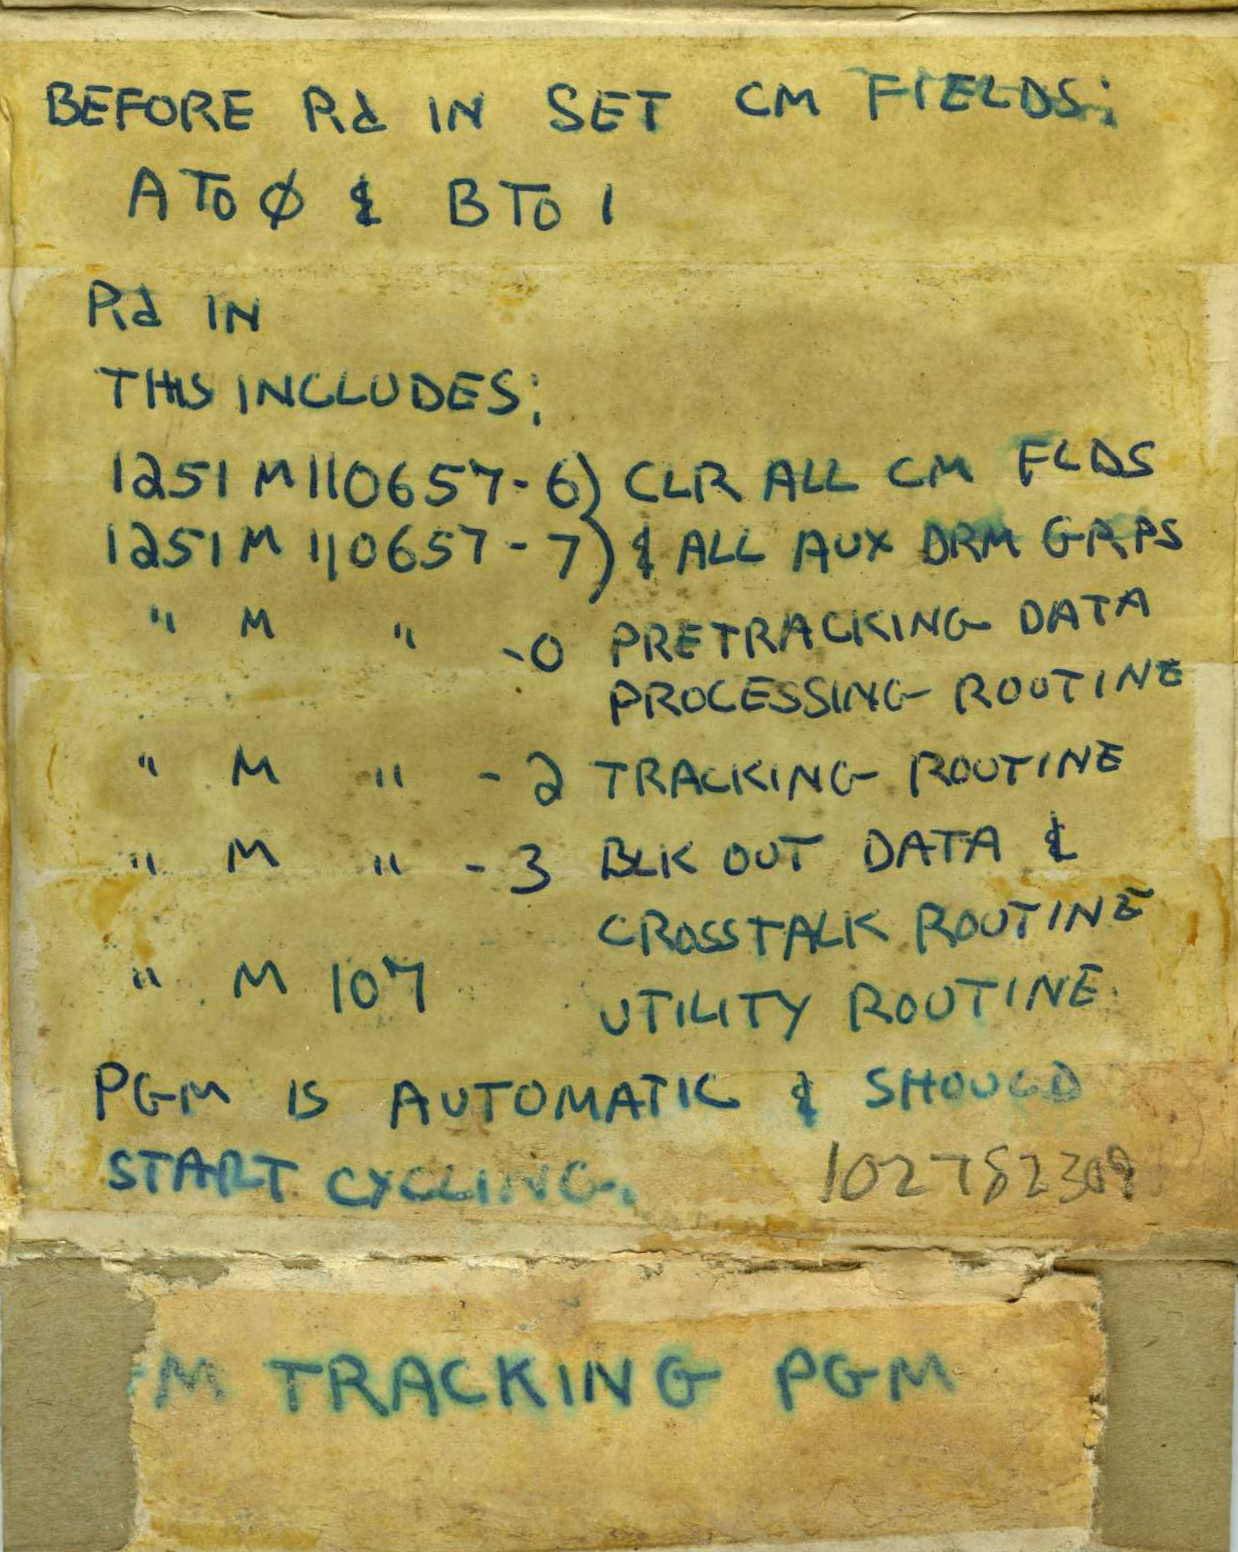 BEFORE Rd IN SET CM FIELDS:
A TO Ø & B TO 1
Rd IN
THIS INCLUDES:
1251 M 110657-6) CLR ALL CM FLDS
1251 M 110657-7) & ALL AUX DRM GRPS
" M " -0 PRETRACKING DATA
PROCESSING ROUTINE
" M " -2 TRACKING ROUTINE
" M " -3 BLK OUT DATA &
CROSSTALK ROUTINE
" M 107 UTILITY ROUTINE
PGM IS AUTOMATIC & SHOULD
START CYCLING.
102782309
M TRACKING PGM